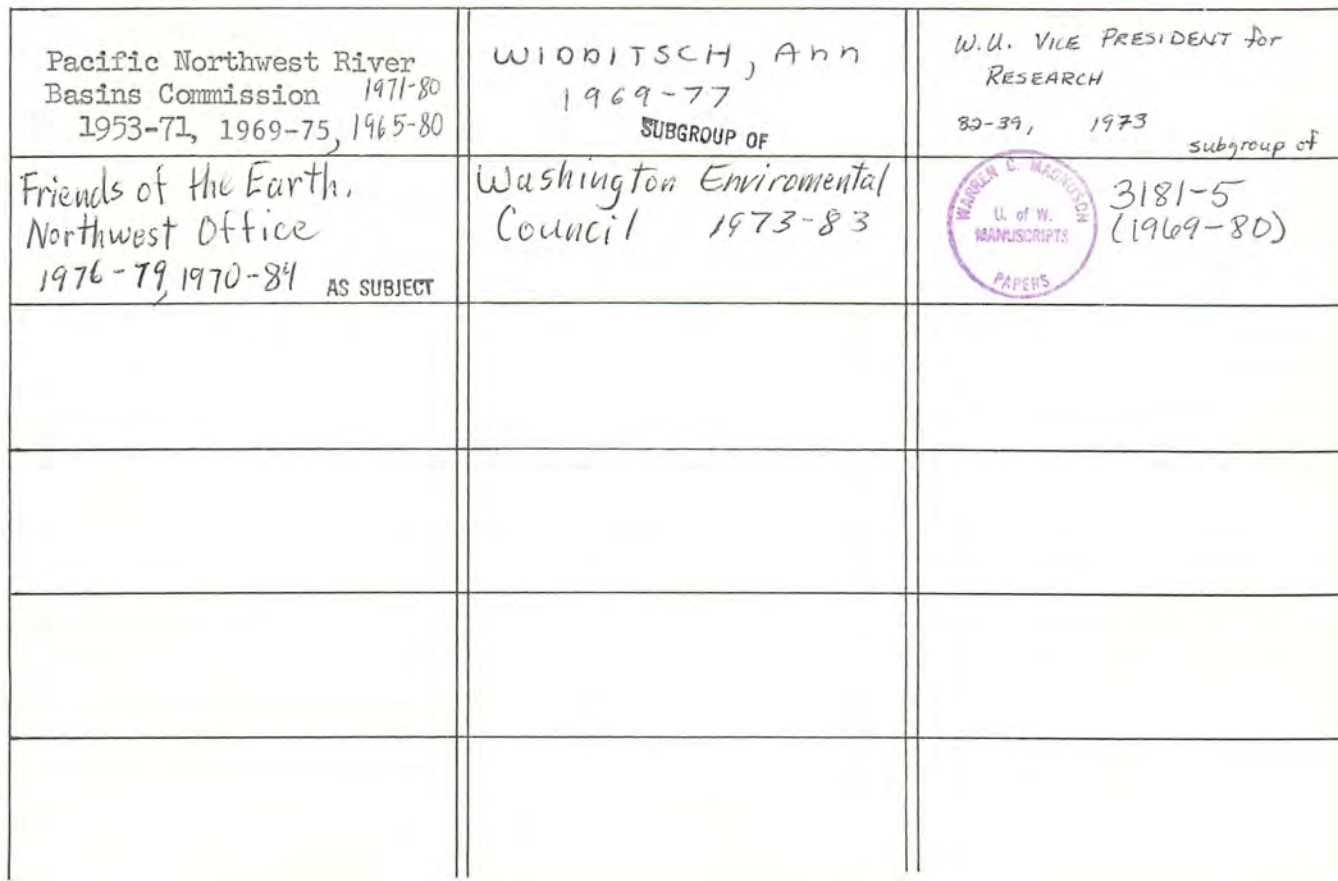 Pacific Northwest River
Basins Commission 1971-80
1953-71, 1969-75, 1965-80
WIDDITSCH, Ann
1969-77
SUBGROUP OF
W.U. VICE PRESIDENT for
RESEARCH
82-39, 1973
subgroup of
Friends of the Earth.
Northwest Office
1976-79, 1970-84 AS SUBJECT
Washington Enviromental
Council 1973-83
WARREN G. MAGNUSON
U. of W.
MANUSCRIPTS
PAPERS
3181-5
(1969-80)